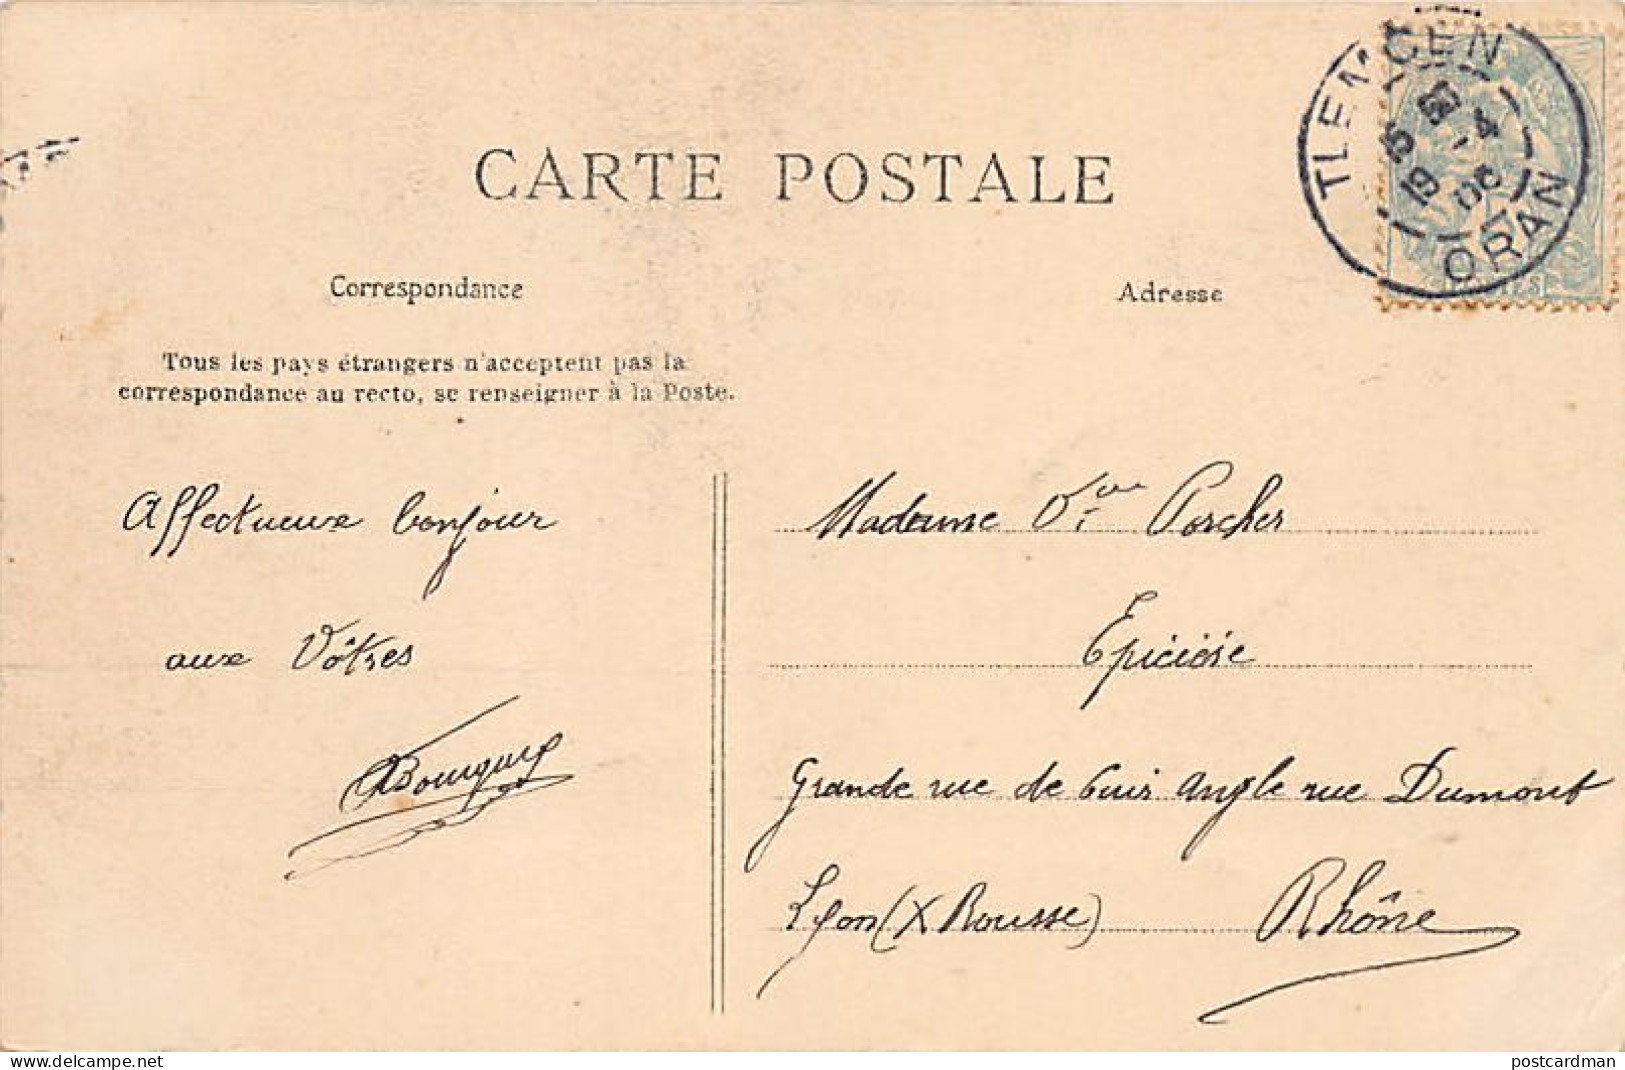 CARTE POSTALE
TLEMCEN
ORAN
19 15
-4
06
POSTES
Correspondance
Adresse
Tous les pays étrangers n'acceptent pas la
correspondance au recto, se renseigner à la Poste.
Affectueux bonjour
aux Vôtres
Madame Vve Porcher
Epicière
Grande rue de Cuir Angle rue Dumont
Lyon (X Rousse) Rhône
delcampe.net
postcardman